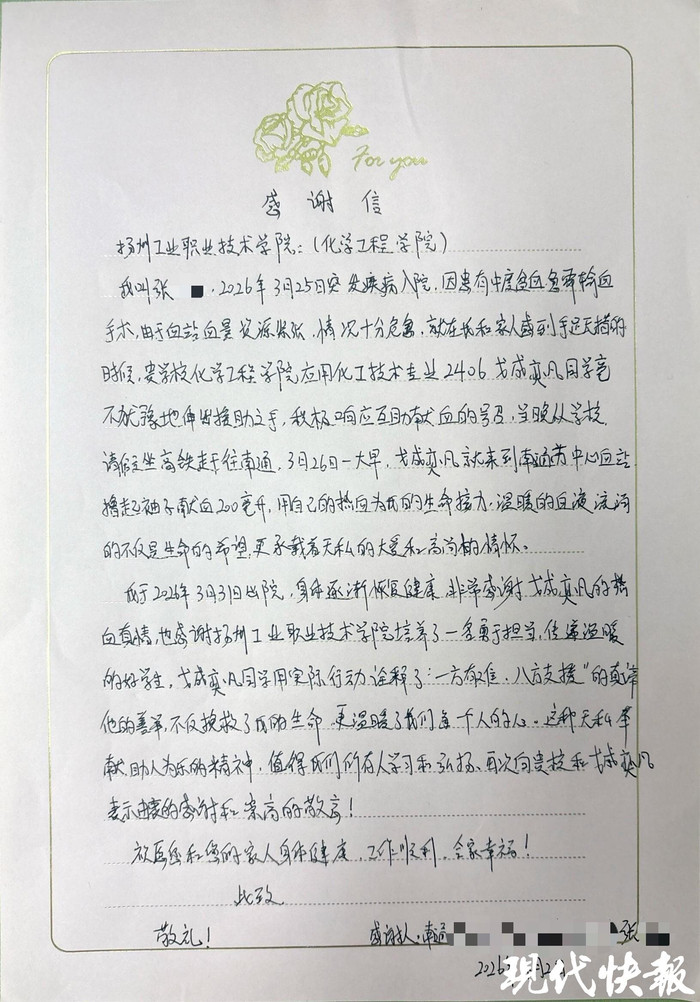 For you
感谢信
扬州工业职业技术学院：（化学工程学院）
我叫张 ，2026年3月25日突发疾病入院，因患有中度贫血急需输血
手术，由于血站血量资源紧张，情况十分危急，就在我和家人感到手足无措的
时候，贵学校化学工程学院应用化工技术专业2406戈成奕凡同学毫
不犹豫地伸出援助之手，积极响应互助献血的号召，当晚从学校
请假坐高铁赶往南通，3月26日一大早，戈成奕凡就来到南通市中心血站
撸起袖子献血200毫升，用自己的热血为我的生命接力，温暖的血液流淌
的不仅是生命的希望，更承载着无私的大爱和高尚的情怀。
我于2026年3月31日出院，身体逐渐恢复健康，非常感谢戈成奕凡的热
血真情，也感谢扬州工业职业技术学院培养了一名勇于担当，传递温暖
的好学生，戈成奕凡同学用实际行动诠释了“一方有难，八方支援”的真谛
他的善举，不仅挽救了我的生命，更温暖了我们每个人的心。这种无私奉
献，助人为乐的精神，值得我们所有人学习和弘扬，再次向贵校和戈成奕凡
表示由衷的感谢和崇高的敬意！
祝 和您的家人身体健康，工作顺利，全家幸福！
此致
敬礼！
感谢人：南通 张
2026
现代快报